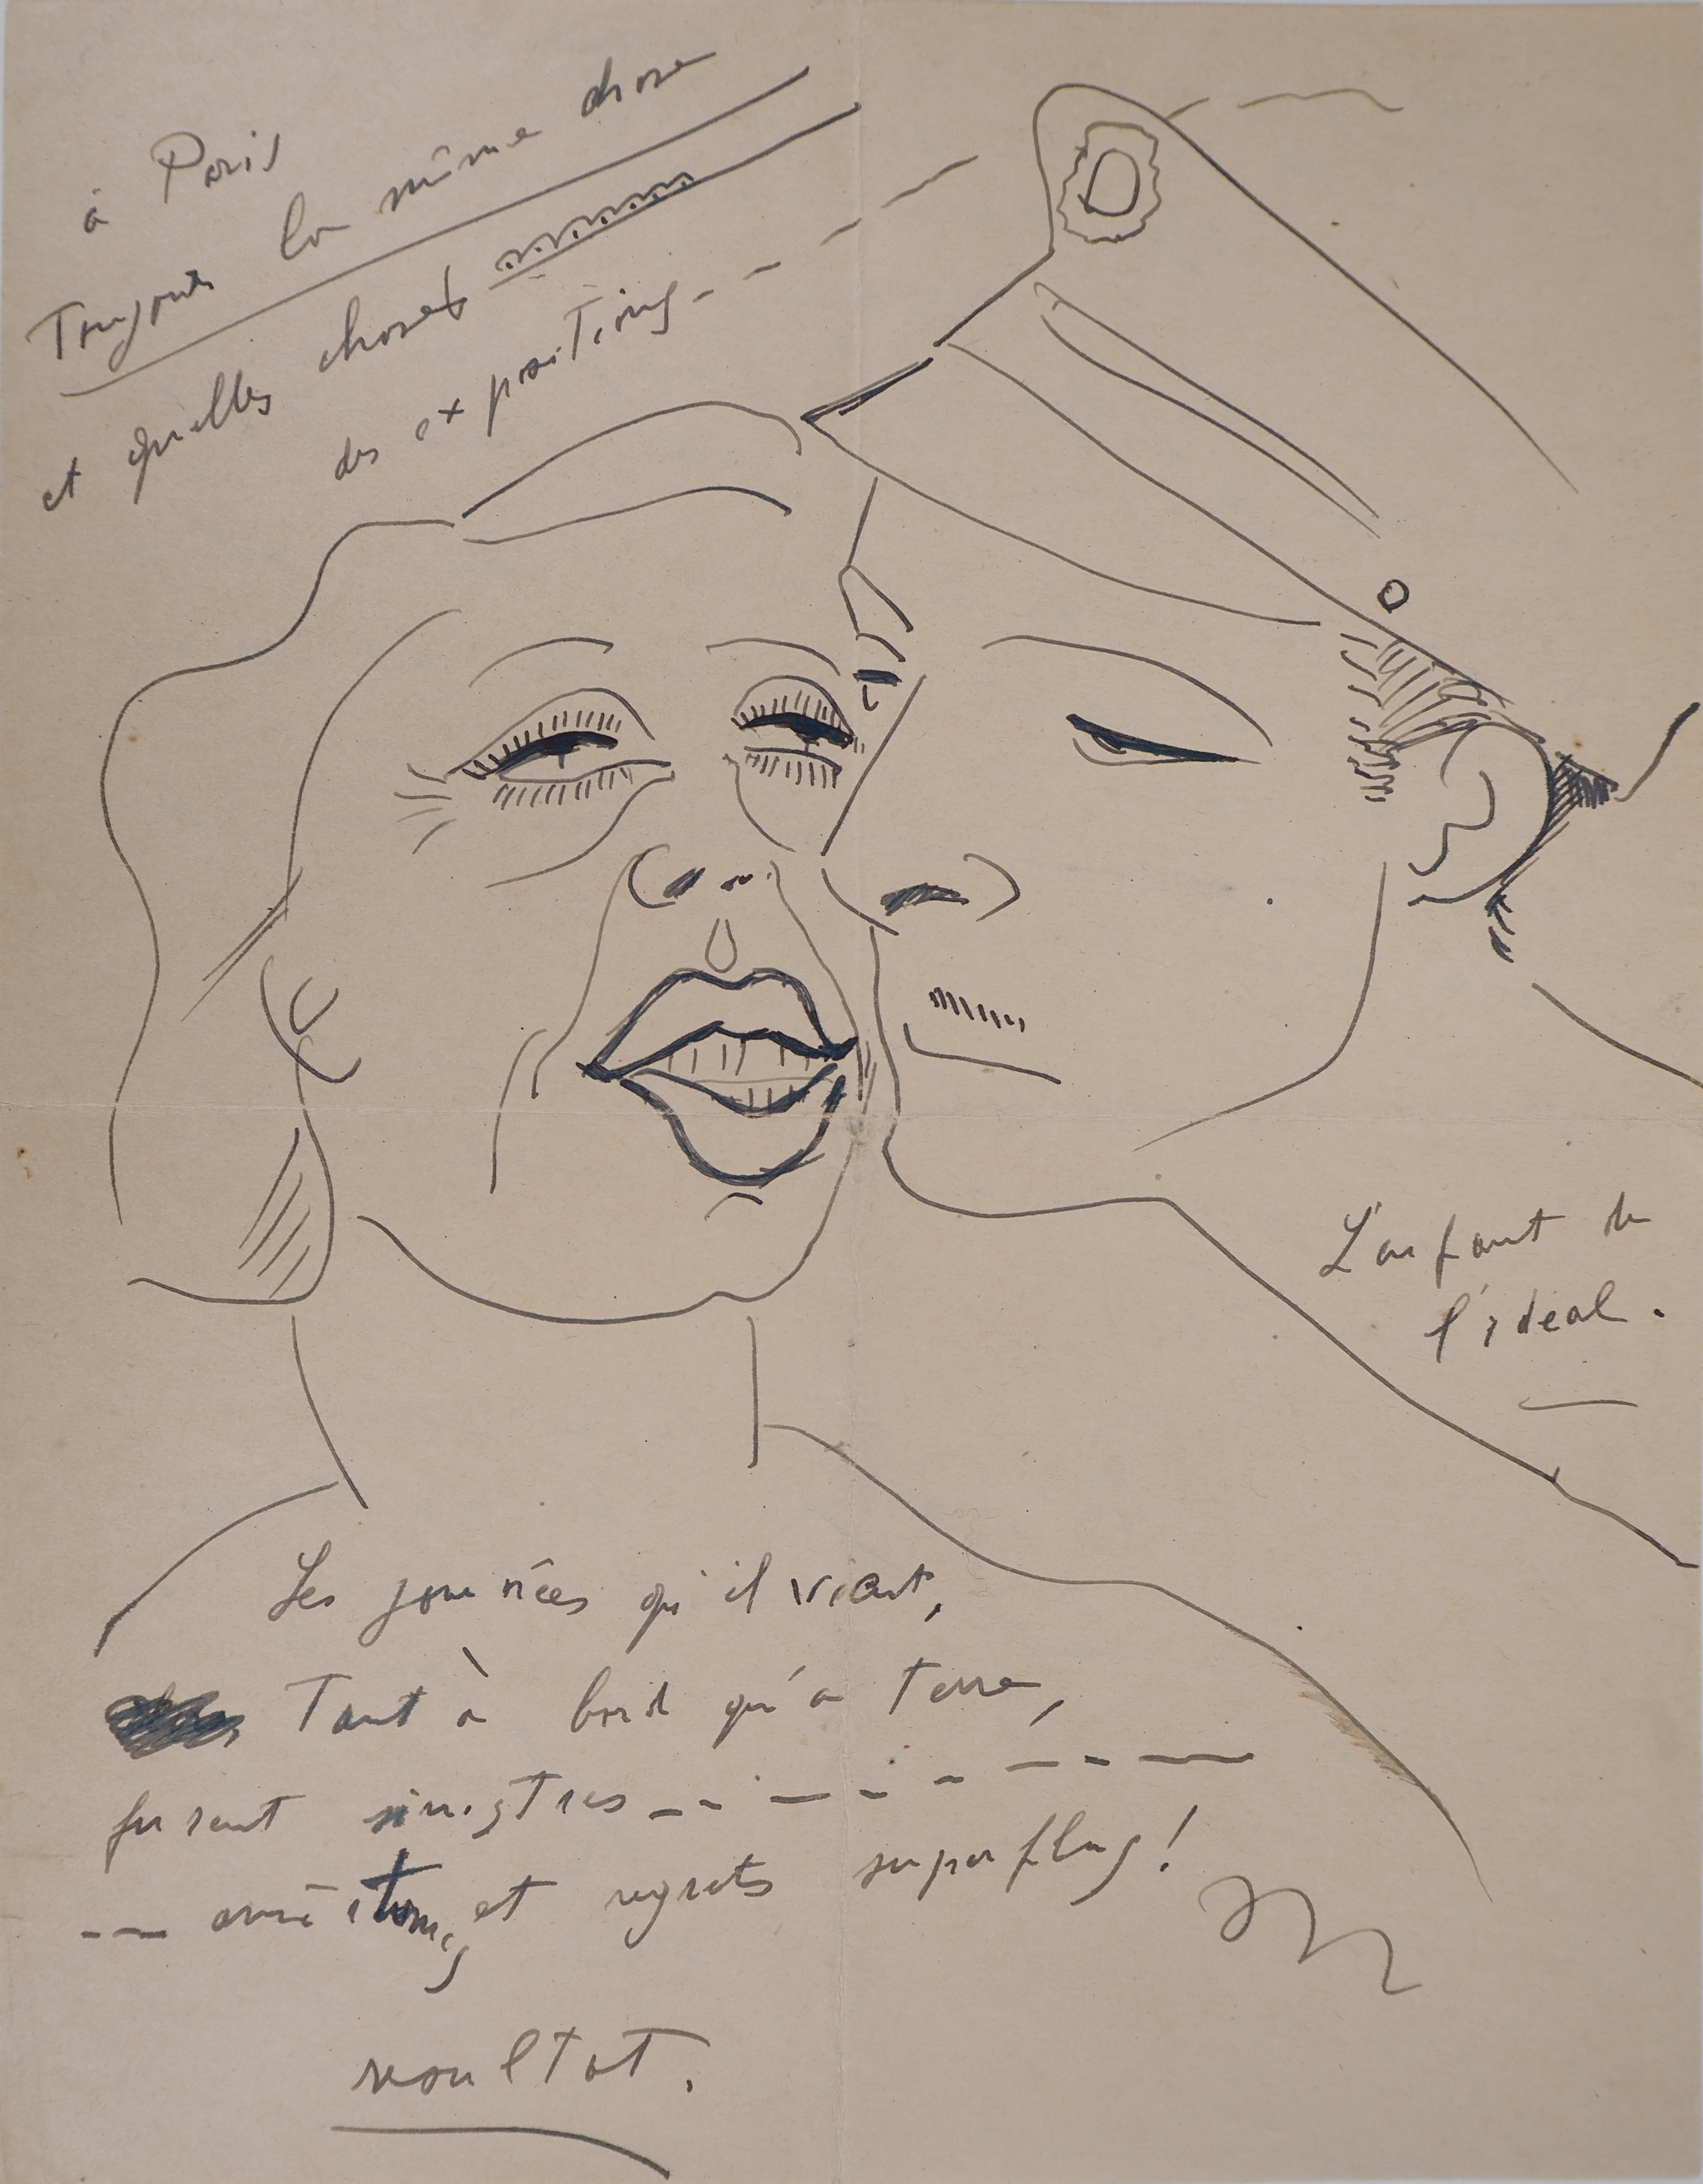 à Paris
Toujours la même chose
et quelles choses
des expositions
L'enfant de
l'idéal.
Les journées qu'il vient,
Tant à bord qu'à terre,
furent sinistres
et regrets superflus!
resultat.